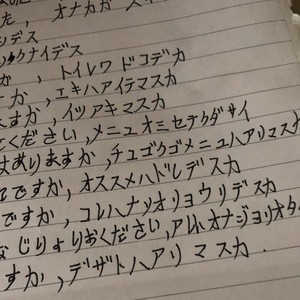 た、オナカガ スキ
デス
クナイデス
か、トイレワ ドコデカ
か、エキハアイテマスカ
ますか、イツアキマスカ
てください、メニュオミセテクダサイ
はありますか、チュゴクゴメニュハアリマスカ
ですか、オススメハドレデスカ
ですか、コレハナンオリョウリデスカ
なじりょりおください、アレトオナジリオタ
すか、デザトハアリマスカ.